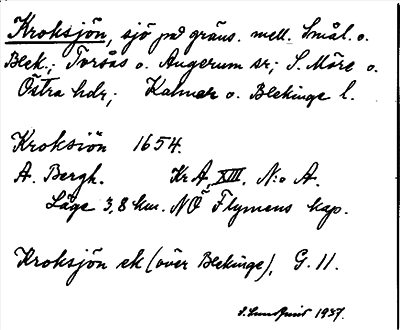 Kroksjön, sjö på gräns. mell. Smål. o.
Blek.; Torsås o. Augerum sr; S. Möre o.
Östra hdr; Kalmar o. Blekinge l.
Kroksiön 1654.
A. Bergh. KrA, XIII. N:o A.
Läge 3,8 km. NÖ Flymens kap.
Kroksjön ek (över Blekinge), G. 11.
1937.